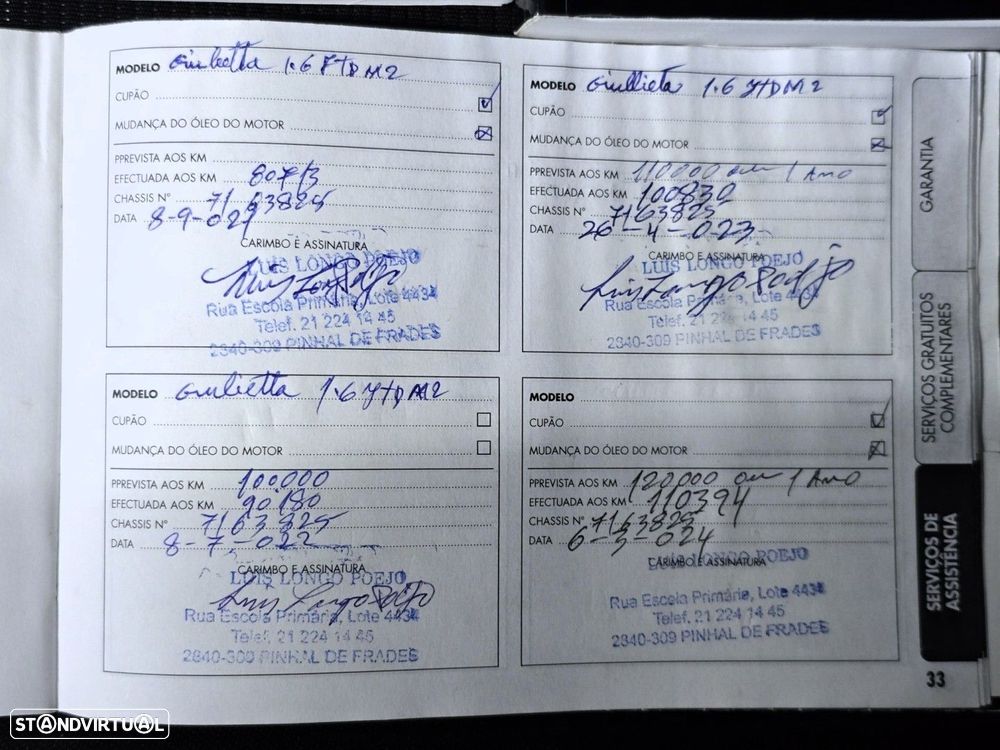 MODELO Giulietta 1.6 JTDM2
CUPÃO
MUDANÇA DO ÓLEO DO MOTOR
PPREVISTA AOS KM
EFECTUADA AOS KM
CHASSIS Nº 7163825
DATA 8-9-021
CARIMBO E ASSINATURA
LUIS LONGO POEJO
Rua Escola Primária, Lote 4434
Telef. 21 224 14 45
2840-309 PINHAL DE FRADES
MODELO Giullieta 1.6 JTDM2
CUPÃO
MUDANÇA DO ÓLEO DO MOTOR
PPREVISTA AOS KM 110000 ou 1 Ano
EFECTUADA AOS KM 100830
CHASSIS Nº 7163825
DATA 26-4-023
CARIMBO E ASSINATURA
LUIS LONGO POEJO
Rua Escola Primária, Lote 4434
Telef. 21 224 14 45
2840-309 PINHAL DE FRADES
MODELO Giulietta 1.6 JTDM2
CUPÃO
MUDANÇA DO ÓLEO DO MOTOR
PPREVISTA AOS KM 100000
EFECTUADA AOS KM 90180
CHASSIS Nº 7163825
DATA 8-7-022
CARIMBO E ASSINATURA
LUIS LONGO POEJO
Luis Longo Poejo
Rua Escola Primária, Lote 4434
Telef. 21 224 14 45
2840-309 PINHAL DE FRADES
MODELO
CUPÃO
MUDANÇA DO ÓLEO DO MOTOR
PPREVISTA AOS KM 120000 ou 1 Ano
EFECTUADA AOS KM 110394
CHASSIS Nº 7163825
DATA 6-5-024
CARIMBO E ASSINATURA
LUIS LONGO POEJO
Rua Escola Primária, Lote 4434
Telef. 21 224 14 45
2840-309 PINHAL DE FRADES
GARANTIA
SERVIÇOS GRATUITOS
COMPLEMENTARES
SERVIÇOS DE
ASSISTÊNCIA
33
STANDVIRTUAL